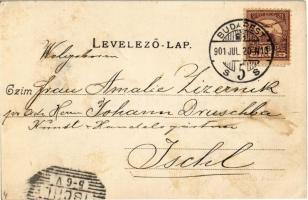 LEVELEZŐ-LAP.
BUDAPEST
901 JUL. 20. N13
S 5 S
Wolgeboren
Czim Frau Amalie Lizernik
per Adr Herrn Johann Druschba
Kunst-Handelsgärtner
Ischl
ISCHL
5-6 V